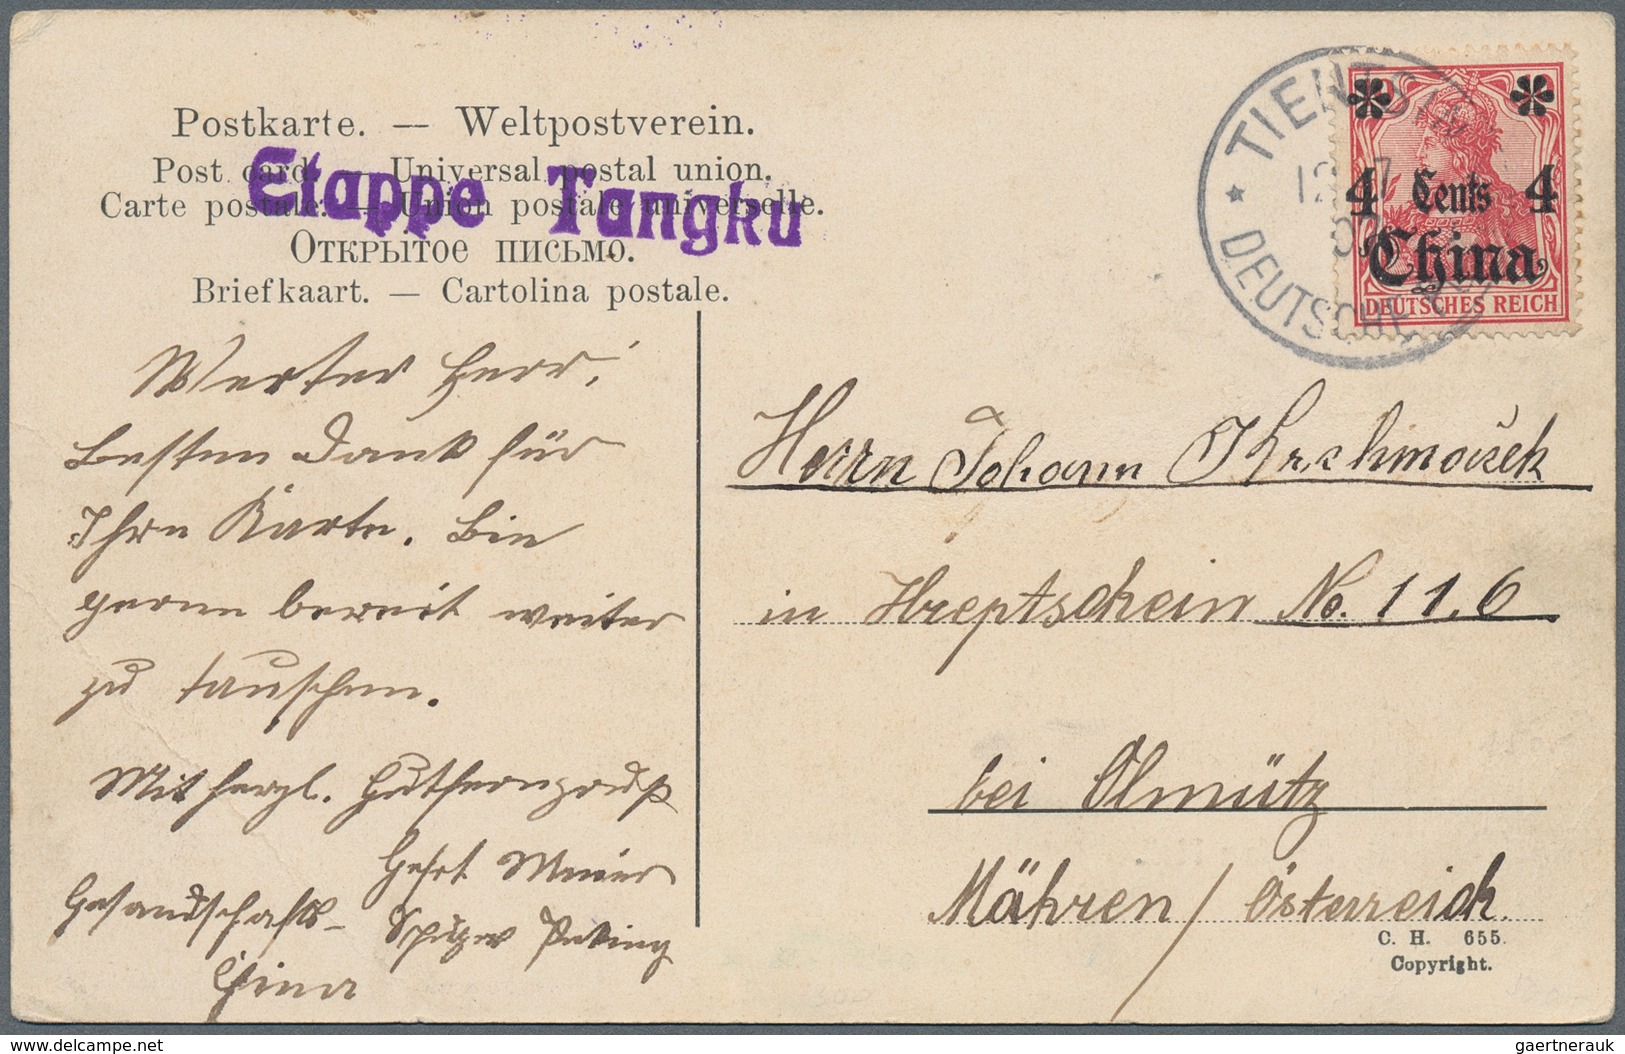 Postkarte. — Weltpostverein.
Post card. — Universal postal union.
Carte postale. — Union postale universelle.
Открытое письмо.
Briefkaart. — Cartolina postale.
Etappe Tangku
TIENTSIN
DEUTSCHE
4 Cents 4
China
DEUTSCHES REICH
Werter Herr!
Besten Dank für
Ihre Karte. Bin
gerne bereit weiter
zu tauschen.
Mit herzl. Gutferngruß
Gefrt Meier
Gesandschafts-
Peking
China
Herrn Johann
in Hreptschein No. 116
bei Olmütz
Mähren / Österreich.
C. H. 655.
Copyright.
gaertnerauk
www.delcampe.net